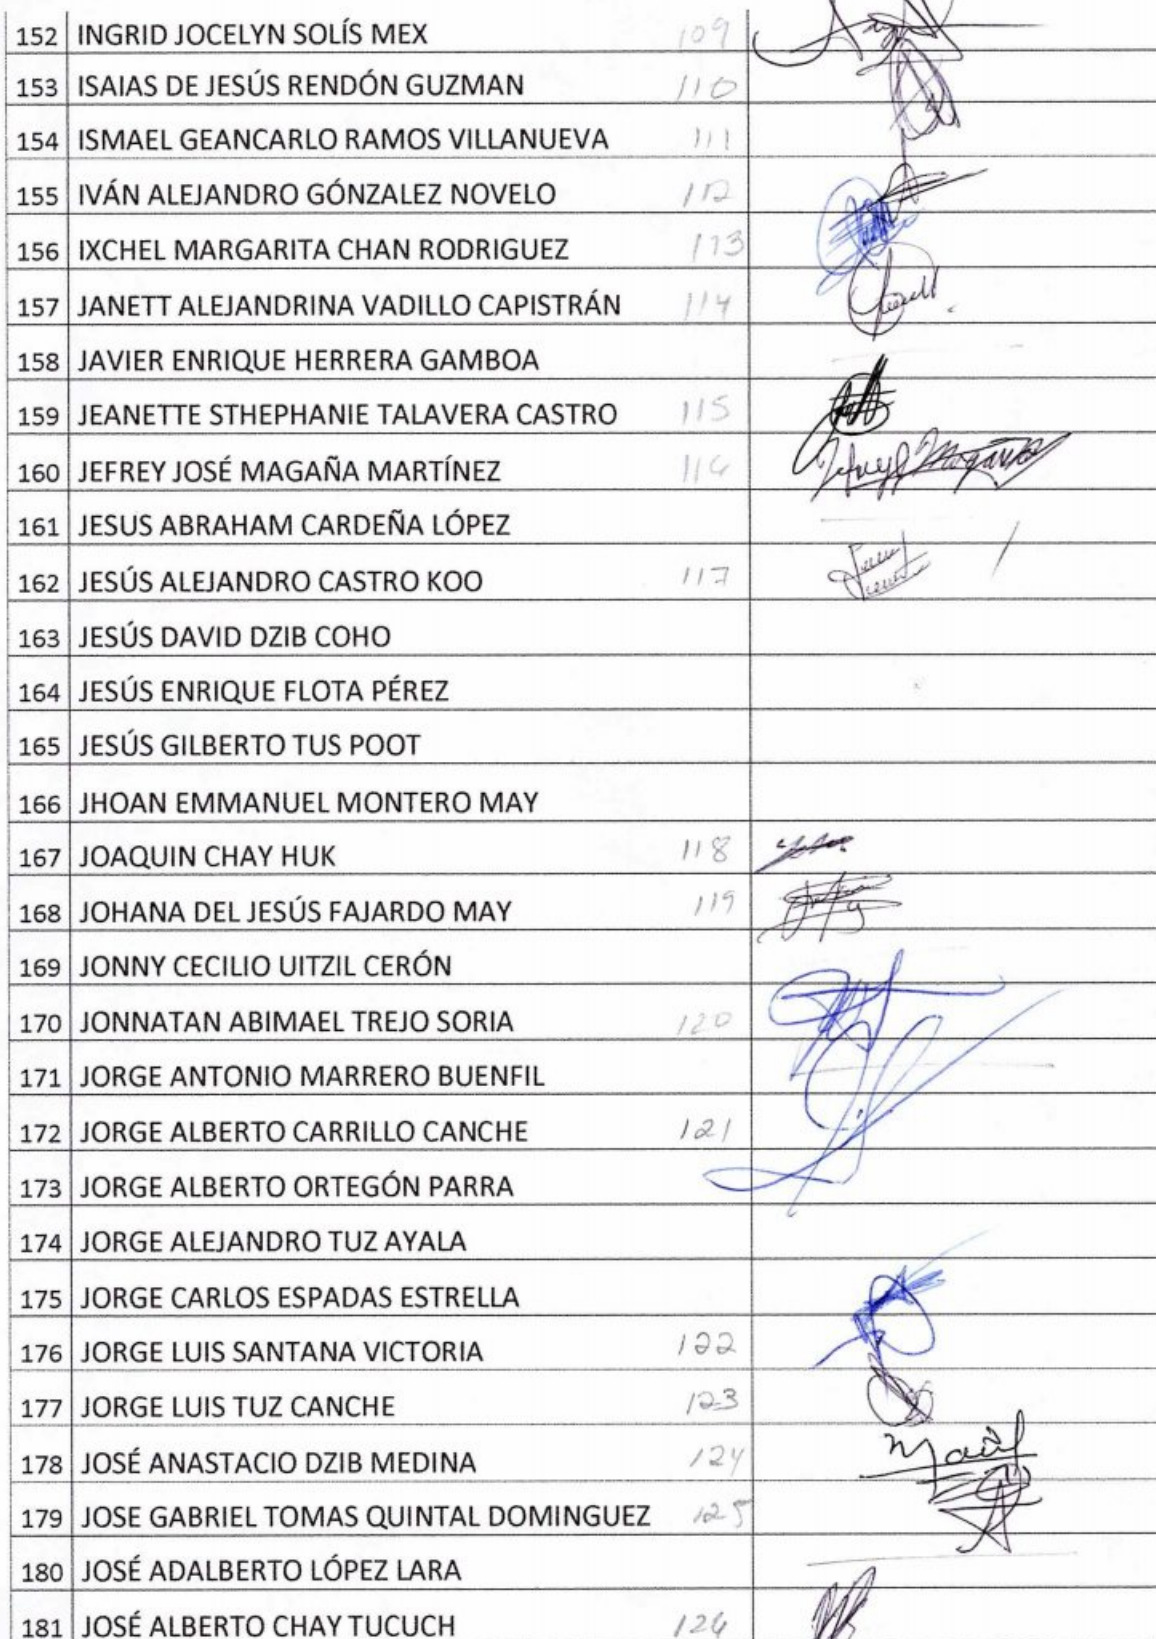 152 INGRID JOCELYN SOLÍS MEX 109
153 ISAIAS DE JESÚS RENDÓN GUZMAN 110
154 ISMAEL GEANCARLO RAMOS VILLANUEVA 111
155 IVÁN ALEJANDRO GÓNZALEZ NOVELO 112
156 IXCHEL MARGARITA CHAN RODRIGUEZ 113
157 JANETT ALEJANDRINA VADILLO CAPISTRÁN 114
158 JAVIER ENRIQUE HERRERA GAMBOA
159 JEANETTE STHEPHANIE TALAVERA CASTRO 115
160 JEFREY JOSÉ MAGAÑA MARTÍNEZ 116 Jefrey Magaña
161 JESUS ABRAHAM CARDEÑA LÓPEZ
162 JESÚS ALEJANDRO CASTRO KOO 117
163 JESÚS DAVID DZIB COHO
164 JESÚS ENRIQUE FLOTA PÉREZ
165 JESÚS GILBERTO TUS POOT
166 JHOAN EMMANUEL MONTERO MAY
167 JOAQUIN CHAY HUK 118
168 JOHANA DEL JESÚS FAJARDO MAY 119
169 JONNY CECILIO UITZIL CERÓN
170 JONNATAN ABIMAEL TREJO SORIA 120
171 JORGE ANTONIO MARRERO BUENFIL
172 JORGE ALBERTO CARRILLO CANCHE 121
173 JORGE ALBERTO ORTEGÓN PARRA
174 JORGE ALEJANDRO TUZ AYALA
175 JORGE CARLOS ESPADAS ESTRELLA
176 JORGE LUIS SANTANA VICTORIA 122
177 JORGE LUIS TUZ CANCHE 123
178 JOSÉ ANASTACIO DZIB MEDINA 124
179 JOSE GABRIEL TOMAS QUINTAL DOMINGUEZ 125
180 JOSÉ ADALBERTO LÓPEZ LARA
181 JOSÉ ALBERTO CHAY TUCUCH 126